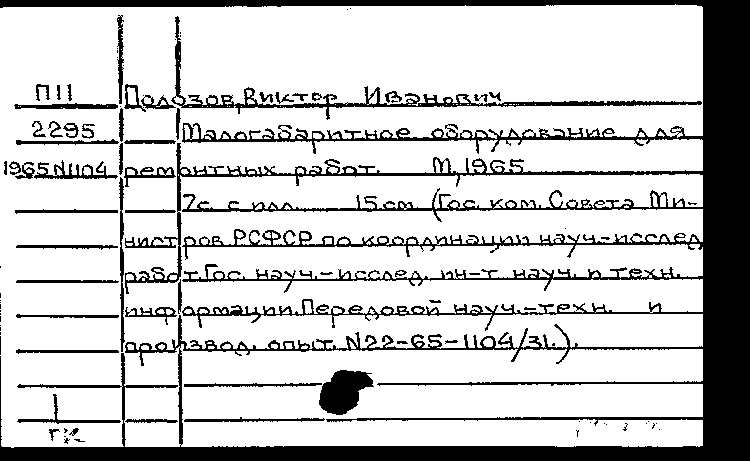 П11 Полозов, Виктор Иванович
2295 Малогабаритное оборудование для
1965N1104 ремонтных работ. М, 1965
7с. с илл. 15 см (Гос. ком. Совета Ми-
нистров РСФСР по координации науч.-исслед
работ. Гос. науч.-исслед. ин-т науч. и техн.
информации. Передовой науч.-техн. и
производ. опыт. N22-65-1104/31.).
ГК